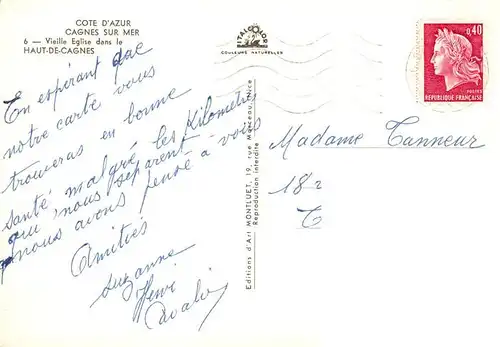 COTE D'AZUR
CAGNES SUR MER
6 - Vieille Eglise dans le
HAUT-DE-CAGNES
ITALCOLOR
COULEURS NATURELLES
0,40
POSTES
REPUBLIQUE FRANÇAISE
En espérant que
notre carte vous
trouveras en bonne
santé malgré les Kilometre
qui nous séparent
nous avons pensé à vous
Amitiés
Suzanne
Henri
Editions d'Art MONTLUET, 19, rue Marceau, Nice
Reproduction interdite
Madame Tanneur
182